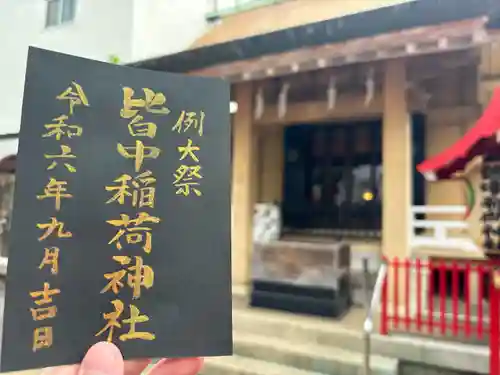 例大祭
皆中稲荷神社
令和六年九月吉日